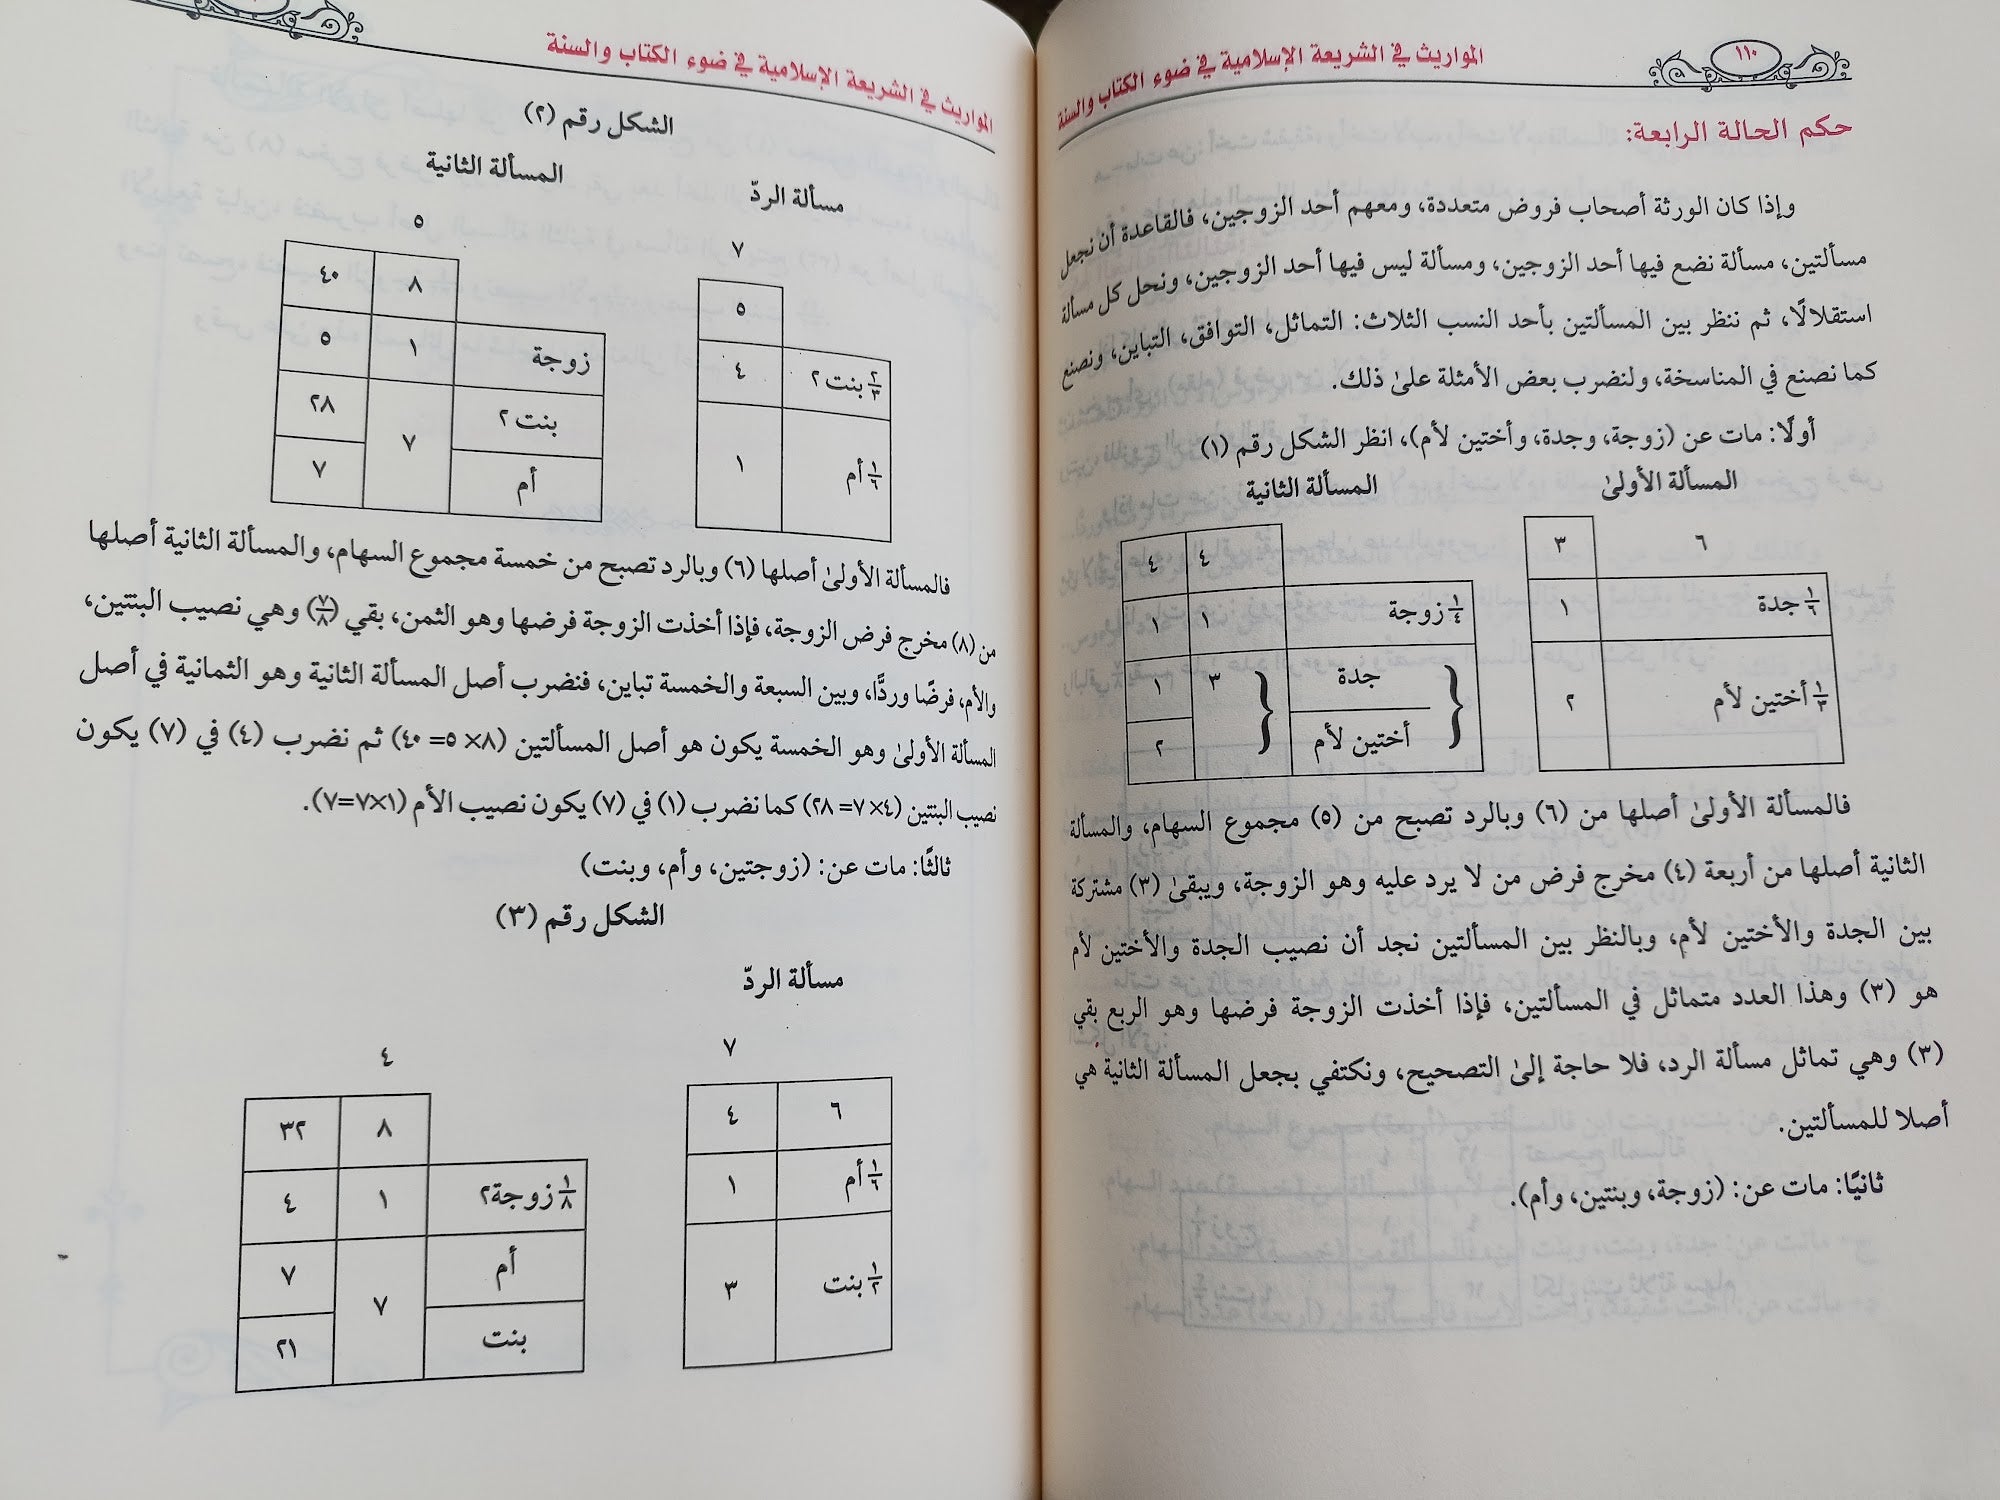 ١١٠
المواريث في الشريعة الإسلامية في ضوء الكتاب والسنة
حكم الحالة الرابعة:
وإذا كان الورثة أصحاب فروض متعددة، ومعهم أحد الزوجين، فالقاعدة أن نجعل
مسألتين، مسألة نضع فيها أحد الزوجين، ومسألة ليس فيها أحد الزوجين، ونحل كل مسألة
استقلالًا، ثم ننظر بين المسألتين بأحد النسب الثلاث: التماثل، التوافق، التباين، ونصنع
كما نصنع في المناسخة، ولنضرب بعض الأمثلة علىٰ ذلك.
أولًا: مات عن (زوجة، وجدة، وأختين لأم)، انظر الشكل رقم (١)
المسألة الأولىٰ
٦ ٣
١/٦ جدة ١
١/٣ أختين لأم ٢
المسألة الثانية
٤ ٤
١/٤ زوجة ١ ١
جدة ٣ ١
أختين لأم ٢
فالمسألة الأولىٰ أصلها من (٦) وبالرد تصبح من (٥) مجموع السهام، والمسألة
الثانية أصلها من أربعة (٤) مخرج فرض من لا يرد عليه وهو الزوجة، ويبقىٰ (٣) مشتركة
بين الجدة والأختين لأم، وبالنظر بين المسألتين نجد أن نصيب الجدة والأختين لأم
هو (٣) وهذا العدد متماثل في المسألتين، فإذا أخذت الزوجة فرضها وهو الربع بقي
(٣) وهي تماثل مسألة الرد، فلا حاجة إلىٰ التصحيح، ونكتفي بجعل المسألة الثانية هي
أصلا للمسألتين.
ثانيًا: مات عن: (زوجة، وبنتين، وأم).
المواريث في الشريعة الإسلامية في ضوء الكتاب والسنة
الشكل رقم (٢)
مسألة الردّ
٧
٥
٢/٣ بنت ٢ ٤
١/٦ أم ١
المسألة الثانية
٥
٨ ٤٠
زوجة ١ ٥
بنت ٢ ٧ ٢٨
أم ٧
فالمسألة الأولىٰ أصلها (٦) وبالرد تصبح من خمسة مجموع السهام، والمسألة الثانية أصلها
من (٨) مخرج فرض الزوجة، فإذا أخذت الزوجة فرضها وهو الثمن، بقي (٧/٨) وهي نصيب البنتين،
والأم، فرضًا وردًّا، وبين السبعة والخمسة تباين، فنضرب أصل المسألة الثانية وهو الثمانية في أصل
المسألة الأولىٰ وهو الخمسة يكون هو أصل المسألتين (٨×٥=٤٠) ثم نضرب (٤) في (٧) يكون
نصيب البنتين (٤×٧=٢٨) كما نضرب (١) في (٧) يكون نصيب الأم (١×٧=٧).
ثالثًا: مات عن: (زوجتين، وأم، وبنت)
الشكل رقم (٣)
مسألة الردّ
٧
٦ ٤
١/٦ أم ١
١/٢ بنت ٣
٤
٨ ٣٢
١/٨ زوجة ٢ ١ ٤
أم ٧ ٧
بنت ٢١